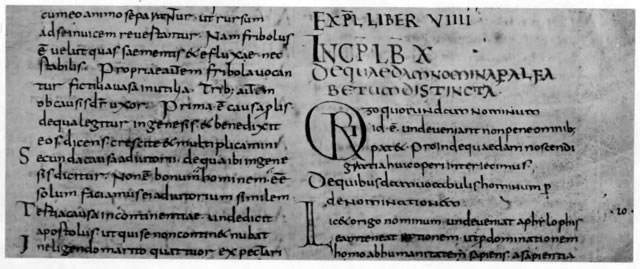 cum eo animo separentur. ut rursum
ad se invicem revertantur. Nam fribolus
ē velut quassae mentis & efluxae nec
stabilis. Propriae autem fribola vocan
tur fictilia vasa inutilia. Trib; autem
ob causis dr̄ uxor. Prima ē causa plis
de qua legitur in genesis & benedixit
eos dicens crescite & multiplicamini
Secunda causa adiutorii. de qua ibi in gene
sis dicitur. Non ē bonum hominem ēē
solum faciamus ei adiutorium similem
Tertia causa incontinentiae. unde dicit
apostolus ut qui se non contine& nubat
In eligendo marito quattuor expectari
EXPL̄ LIBER VIIII
INCP̄ LB̄ X
De quaedam nomina p alfa
betum distincta
ORIgo quorundam nominum
id ē. unde veniant non pene omnib;
pat&. Proinde quaedam noscendi
gratia huic operi interiecimus
De quibusdam vocabulis hominum p̄
denominationem
Licet origo nominum unde veniat a philosophis
eam teneat rationem ut p dominationem
homo ab humanitatem sapiens. a sapientia
.20.